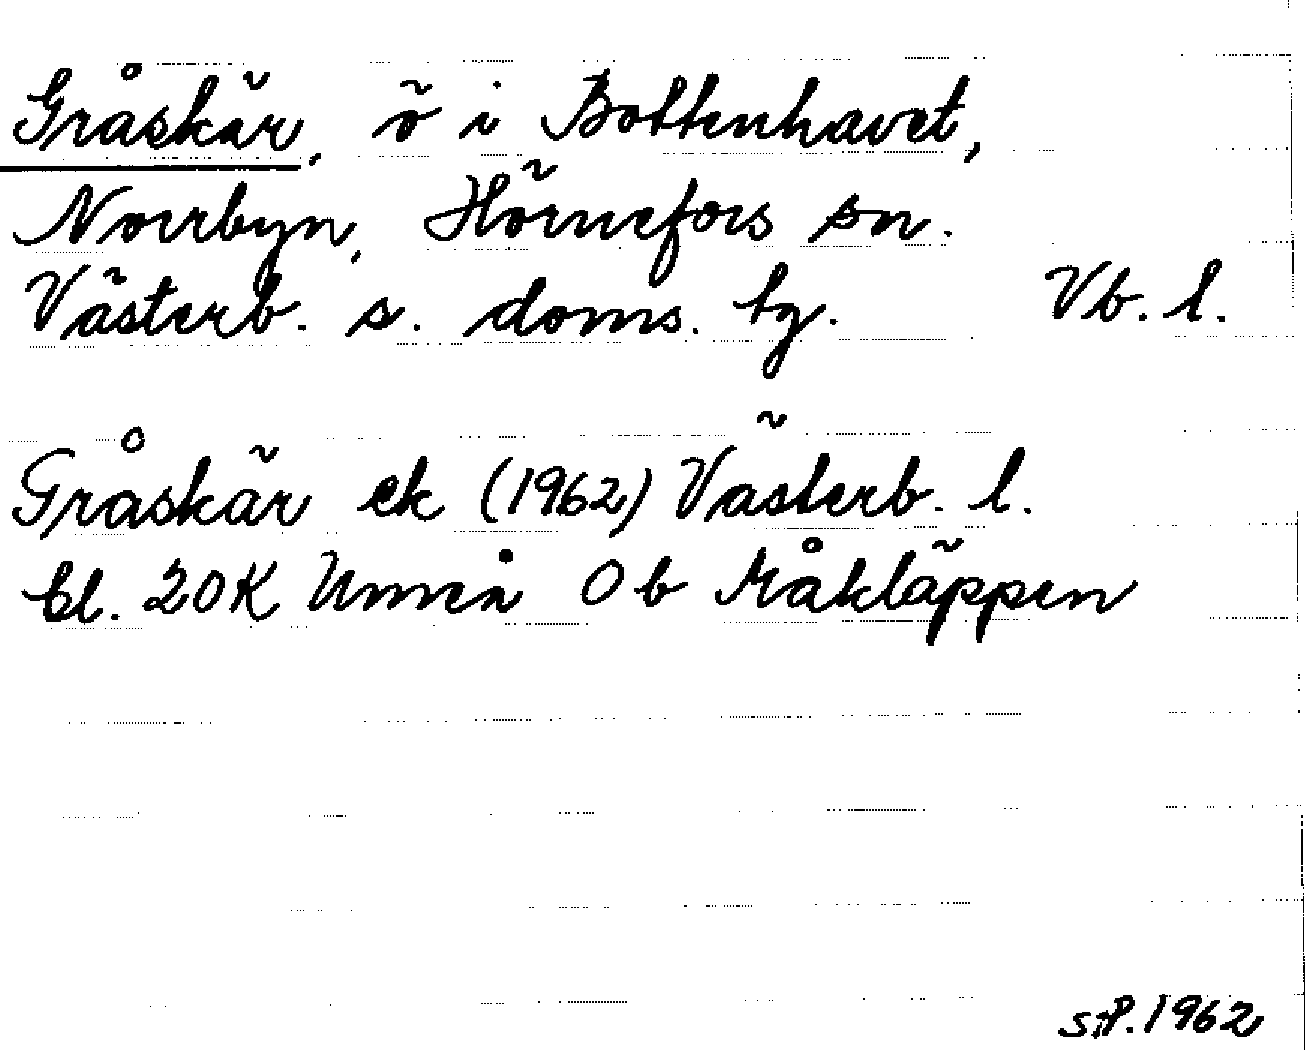 Gråskär, ö i Bottenhavet,
Norrbyn, Hörnefors sn.
Västerb. s. doms. tg. Vb. l.
Gråskär ek (1962) Västerb. l.
bl. 20K Umeå 0 b Måkläppen
StP. 1962